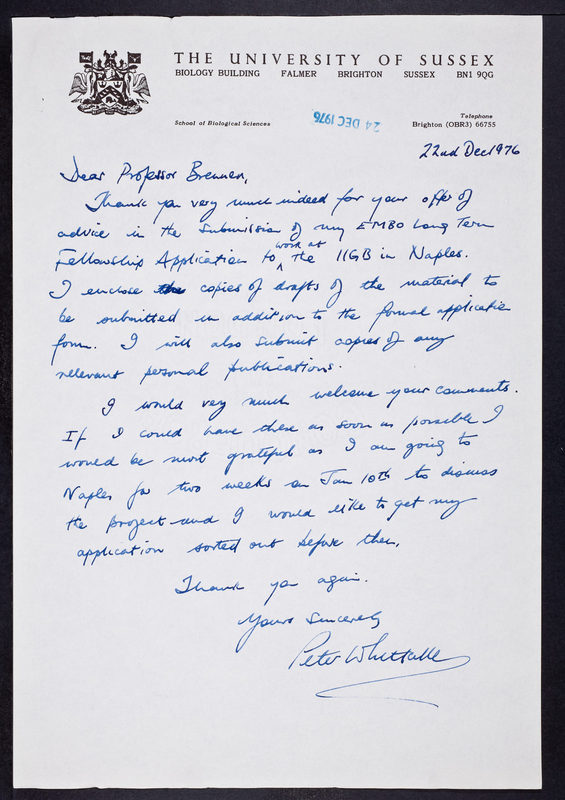 THE UNIVERSITY OF SUSSEX
BIOLOGY BUILDING FALMER BRIGHTON SUSSEX BN1 9QG
School of Biological Sciences
24 DEC 1976
Telephone
Brighton (OBR3) 66755
22nd Dec 1976
Dear Professor Brenner,
Thank you very much indeed for your offer of
advice in the submission of my EMBO Long Term
Fellowship Application to work at the IIGB in Naples.
I enclose the copies of drafts of the material to
be submitted in addition to the formal application
form. I will also submit copies of any
relevant personal publications.
I would very much welcome your comments.
If I could have these as soon as possible I
would be most grateful as I am going to
Naples for two weeks on Jan 10th to discuss
the project and I would like to get my
application sorted out before then.
Thank you again.
Yours Sincerely
Peter Whittaker